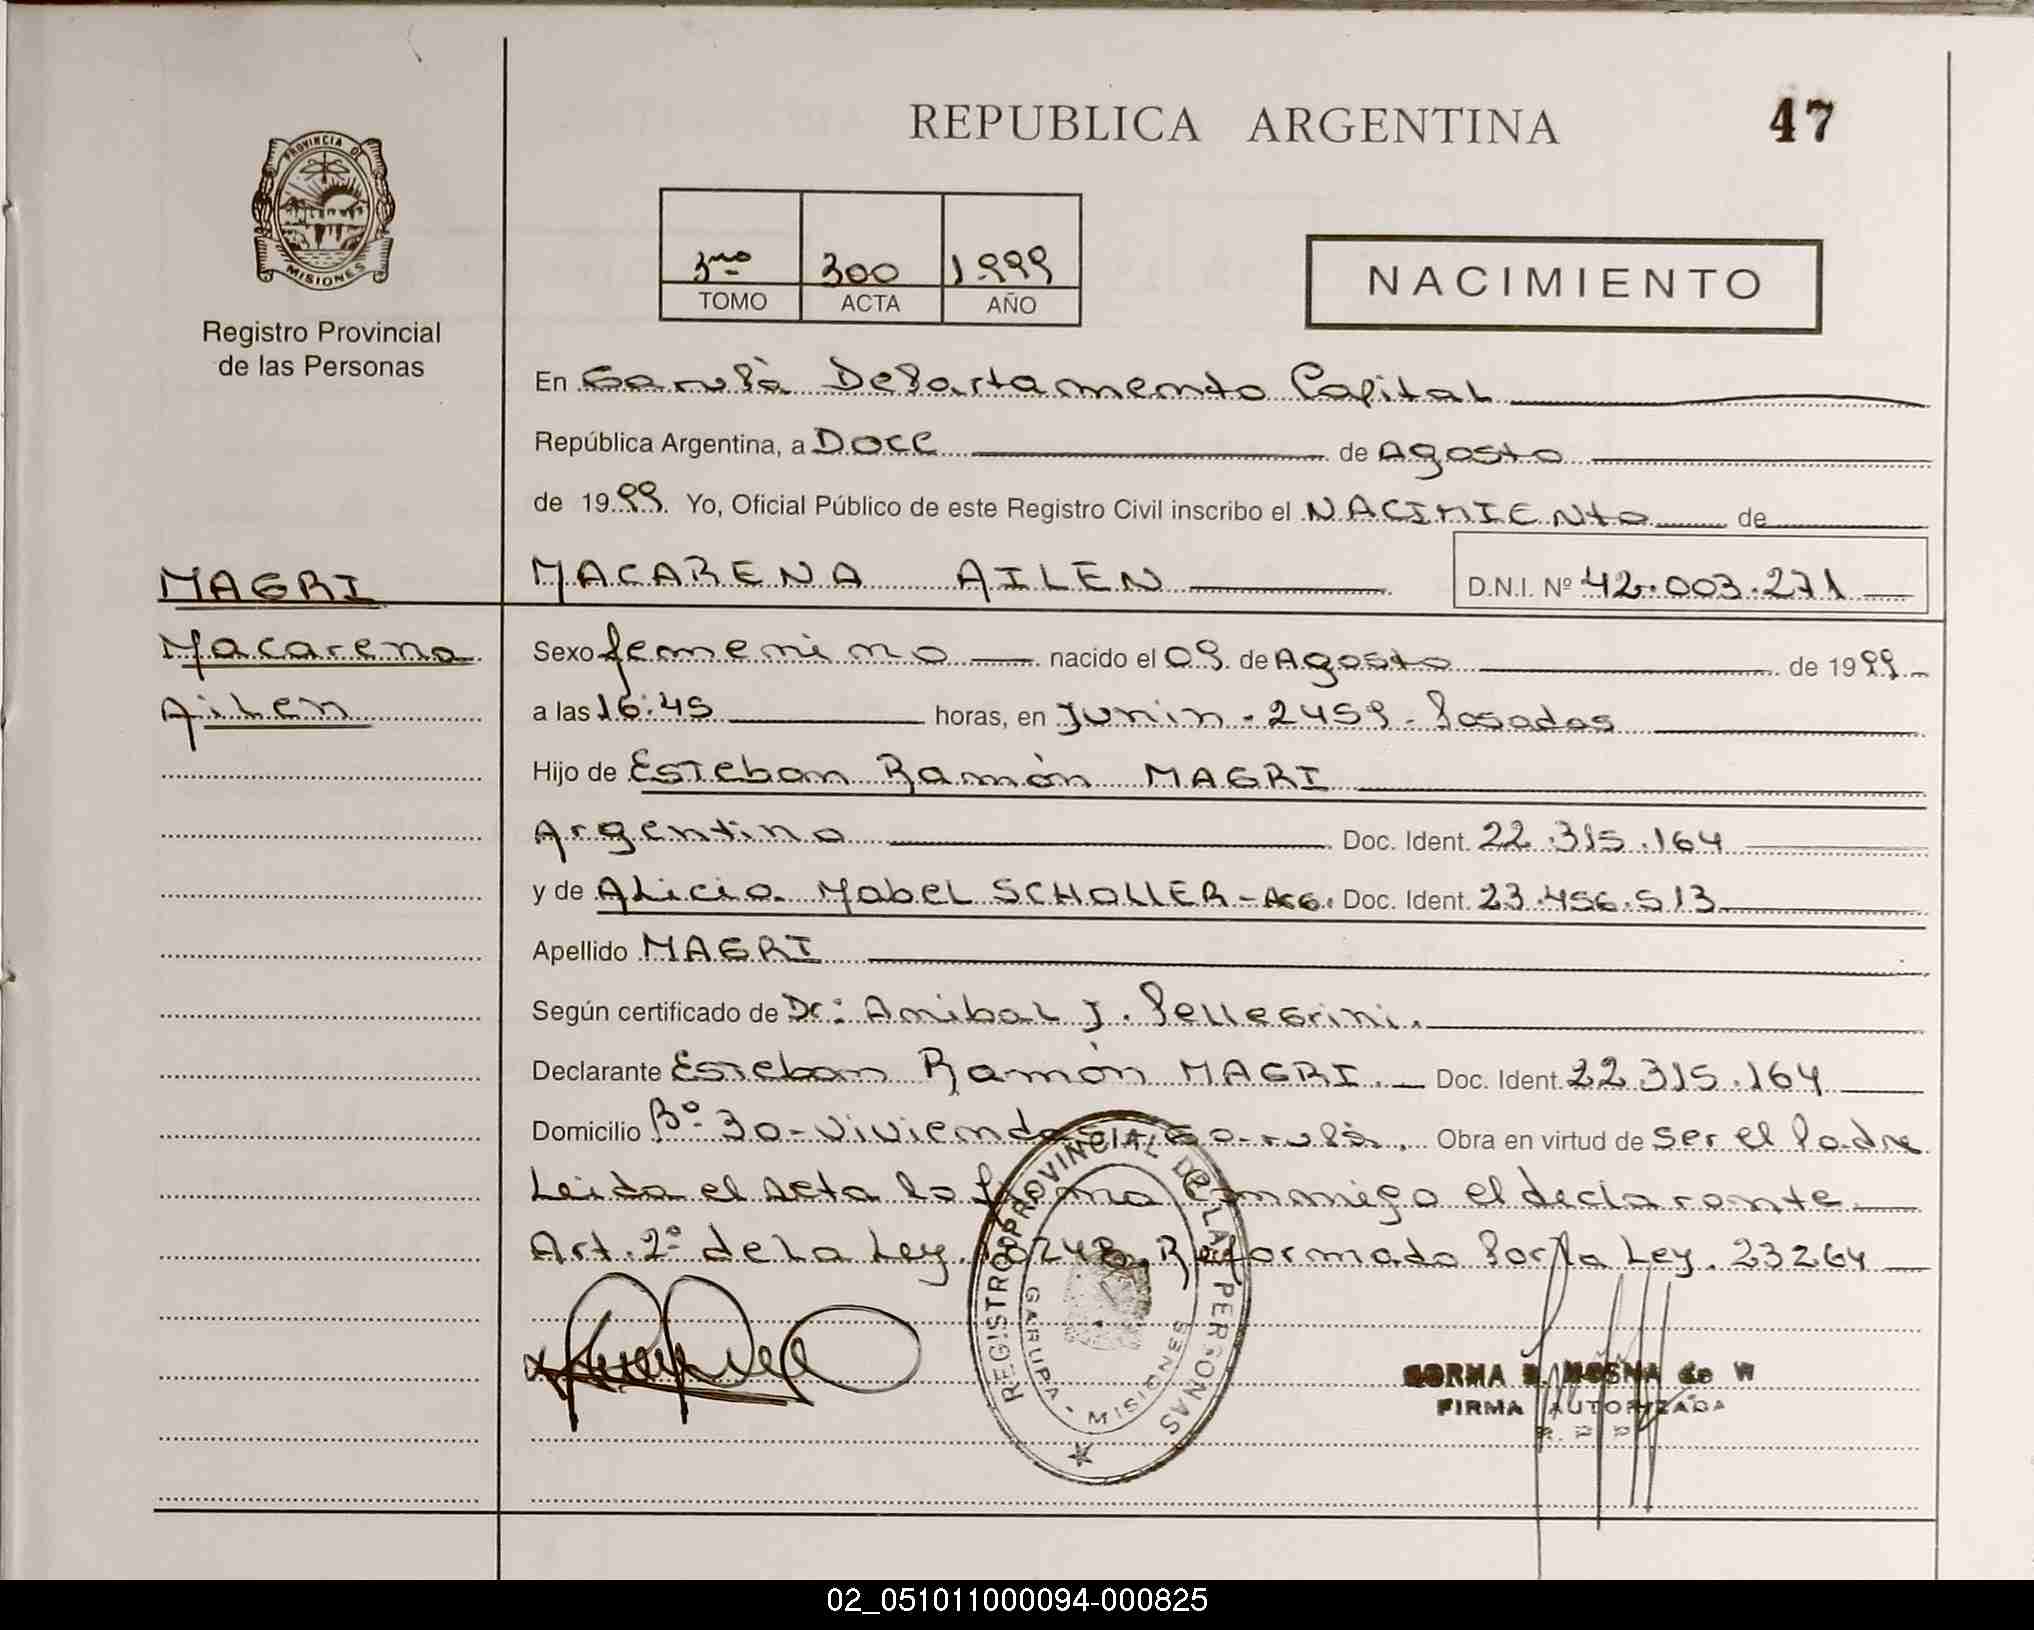 REPUBLICA ARGENTINA
47
PROVINCIA DE
MISIONES
Registro Provincial
de las Personas
3ro 300 1999
TOMO ACTA AÑO
NACIMIENTO
En Garupà Departamento Capital
República Argentina, a DOCE de Agosto
de 1999. Yo, Oficial Público de este Registro Civil inscribo el NACIMIENto de
MAGRI
Macarena
Ailen
MACARENA AILEN D.N.I. Nº 42.003.271
Sexo femenino nacido el 09. de Agosto de 1999
a las 16:45 horas, en Junin - 2459 - Posadas
Hijo de Esteban Ramón MAGRI
Argentino Doc. Ident. 22.315.164
y de Alicia Mabel SCHOLLER - ARG. Doc. Ident. 23.456.513
Apellido MAGRI
Según certificado de Dr: Anibal J. Pellegrini.
Declarante Esteban Ramón MAGRI. Doc. Ident. 22.315.164
Domicilio Bº 30 - vivienda Garupà. Obra en virtud de ser el Padre
Leida el acta la firma conmigo el declarante
Art. 2º de la Ley. 18248. Reformado Por la Ley. 23264
REGISTRO PROVINCIAL DE LAS PERSONAS
GARUPA - MISIONES
MOSNA de W
FIRMA AUTORIZADA
02_051011000094-000825